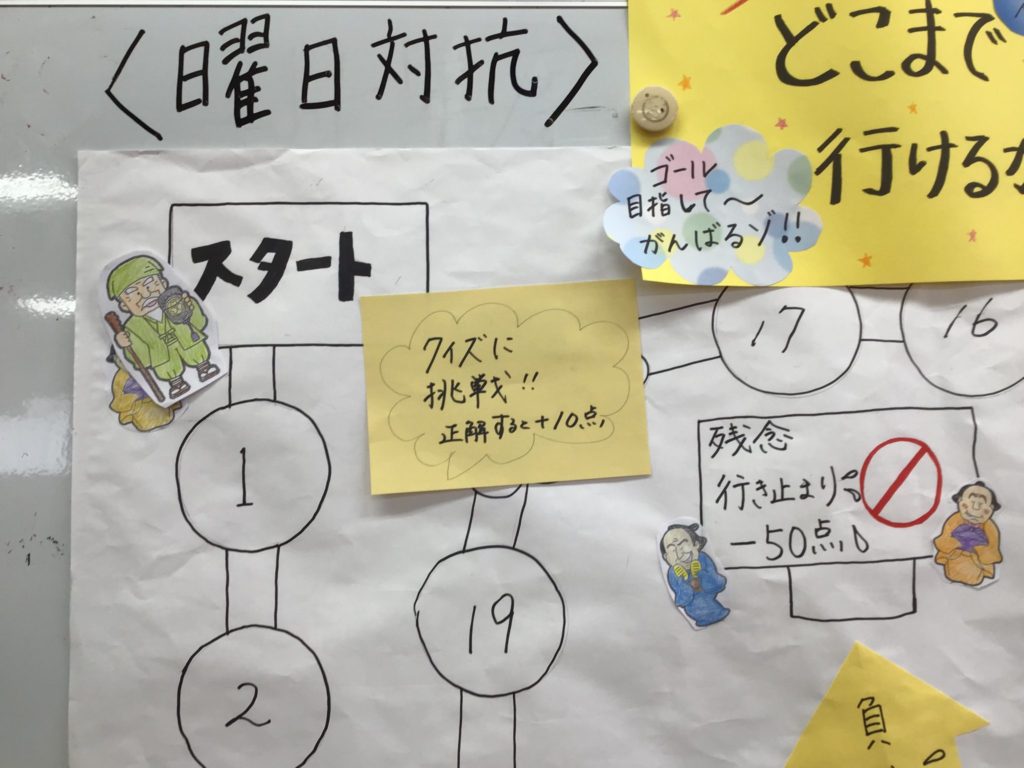 〈曜日対抗〉
どこまで
行けるか
ゴール
目指して〜
がんばるゾ!!
スタート
クイズに
挑戦!!
正解すると+10点
17
16
1
残念
行き止まり
-50点
19
2
負